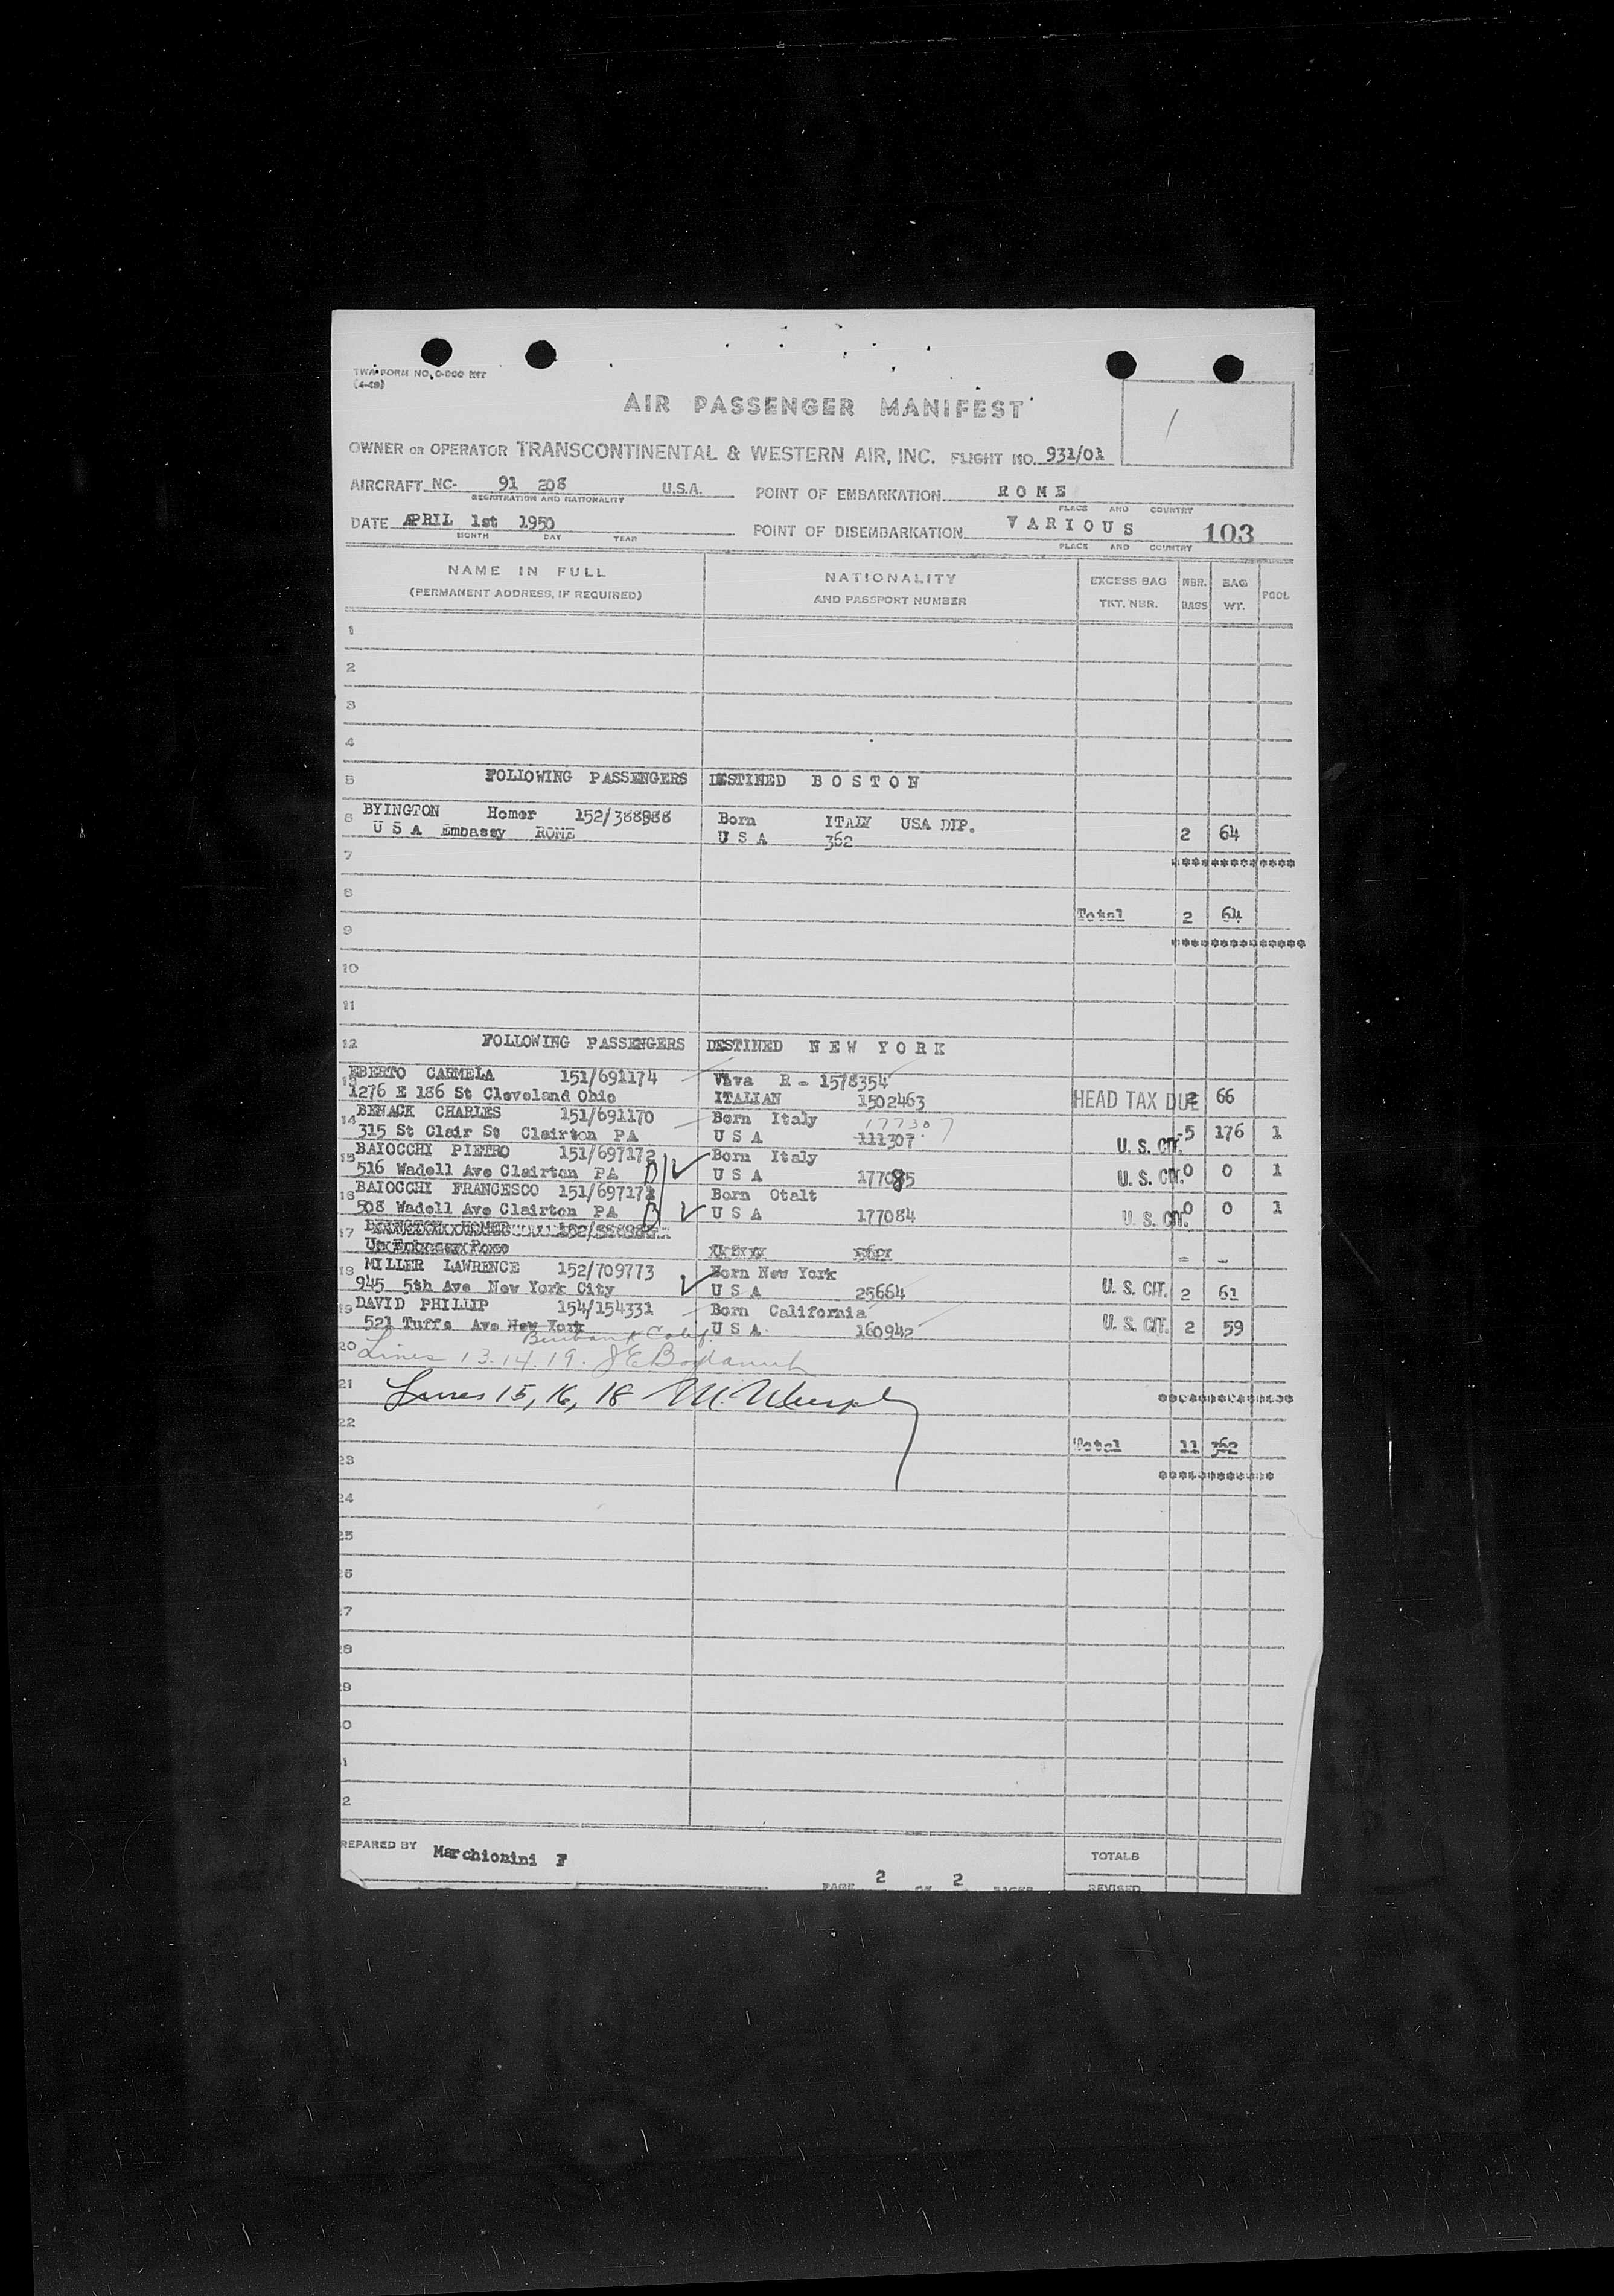 TWA FORM NO. O-800 INT
(4-49)
1
AIR PASSENGER MANIFEST
OWNER OR OPERATOR TRANSCONTINENTAL & WESTERN AIR, INC. FLIGHT NO. 931/01
AIRCRAFT NC- 91 208 U.S.A. POINT OF EMBARKATION ROME
REGISTRATION AND NATIONALITY PLACE AND COUNTRY
DATE APRIL 1st 1950 POINT OF DISEMBARKATION VARIOUS 103
MONTH DAY YEAR PLACE AND COUNTRY
NAME IN FULL NATIONALITY EXCESS BAG NBR. BAG POOL
(PERMANENT ADDRESS, IF REQUIRED) AND PASSPORT NUMBER TKT. NBR. BAGS WT.
1
2
3
4
5 FOLLOWING PASSENGERS DESTINED BOSTON
6 BYINGTON Homer 152/388988 Born ITALY USA DIP.
U S A Embassy ROME U S A 362 2 64
7 *************
8
Total 2 64
9 **************
10
11
12 FOLLOWING PASSENGERS DESTINED NEW YORK
13 EBERTO CARMELA 151/691174 Viva R - 1578354
1276 E 186 St Cleveland Ohio ITALIAN 1502463 HEAD TAX DUE 2 66
14 BENACK CHARLES 151/691170 Born Italy 177307
315 St Clair St Clairton PA U S A 111307 U. S. CIT. 5 176 1
15 BAIOCCHI PIETRO 151/697172 Born Italy
516 Wadell Ave Clairton PA B U S A 177085 U. S. CIT. 0 0 1
16 BAIOCCHI FRANCESCO 151/697171 Born Otalt
508 Wadell Ave Clairton PA B U S A 177084 U. S. CIT. 0 0 1
17 BYINGTON HOMER 152/388988
Us Embassy Rome - -
18 MILLER LAWRENCE 152/709773 Born New York
945 5th Ave New York City U S A 25664 U. S. CIT. 2 61
19 DAVID PHILLIP 154/154331 Born California
521 Tuffs Ave New York U S A 160942 U. S. CIT. 2 59
Burbank Calif.
20 Lines 13.14.19.
21 Lines 15, 16, 18 M. Murphy *************
22
Total 11 362
23 ************
24
25
26
27
28
29
30
31
32
PREPARED BY Marchionini F TOTALS
PAGE 2 OF 2 PAGES REVISED